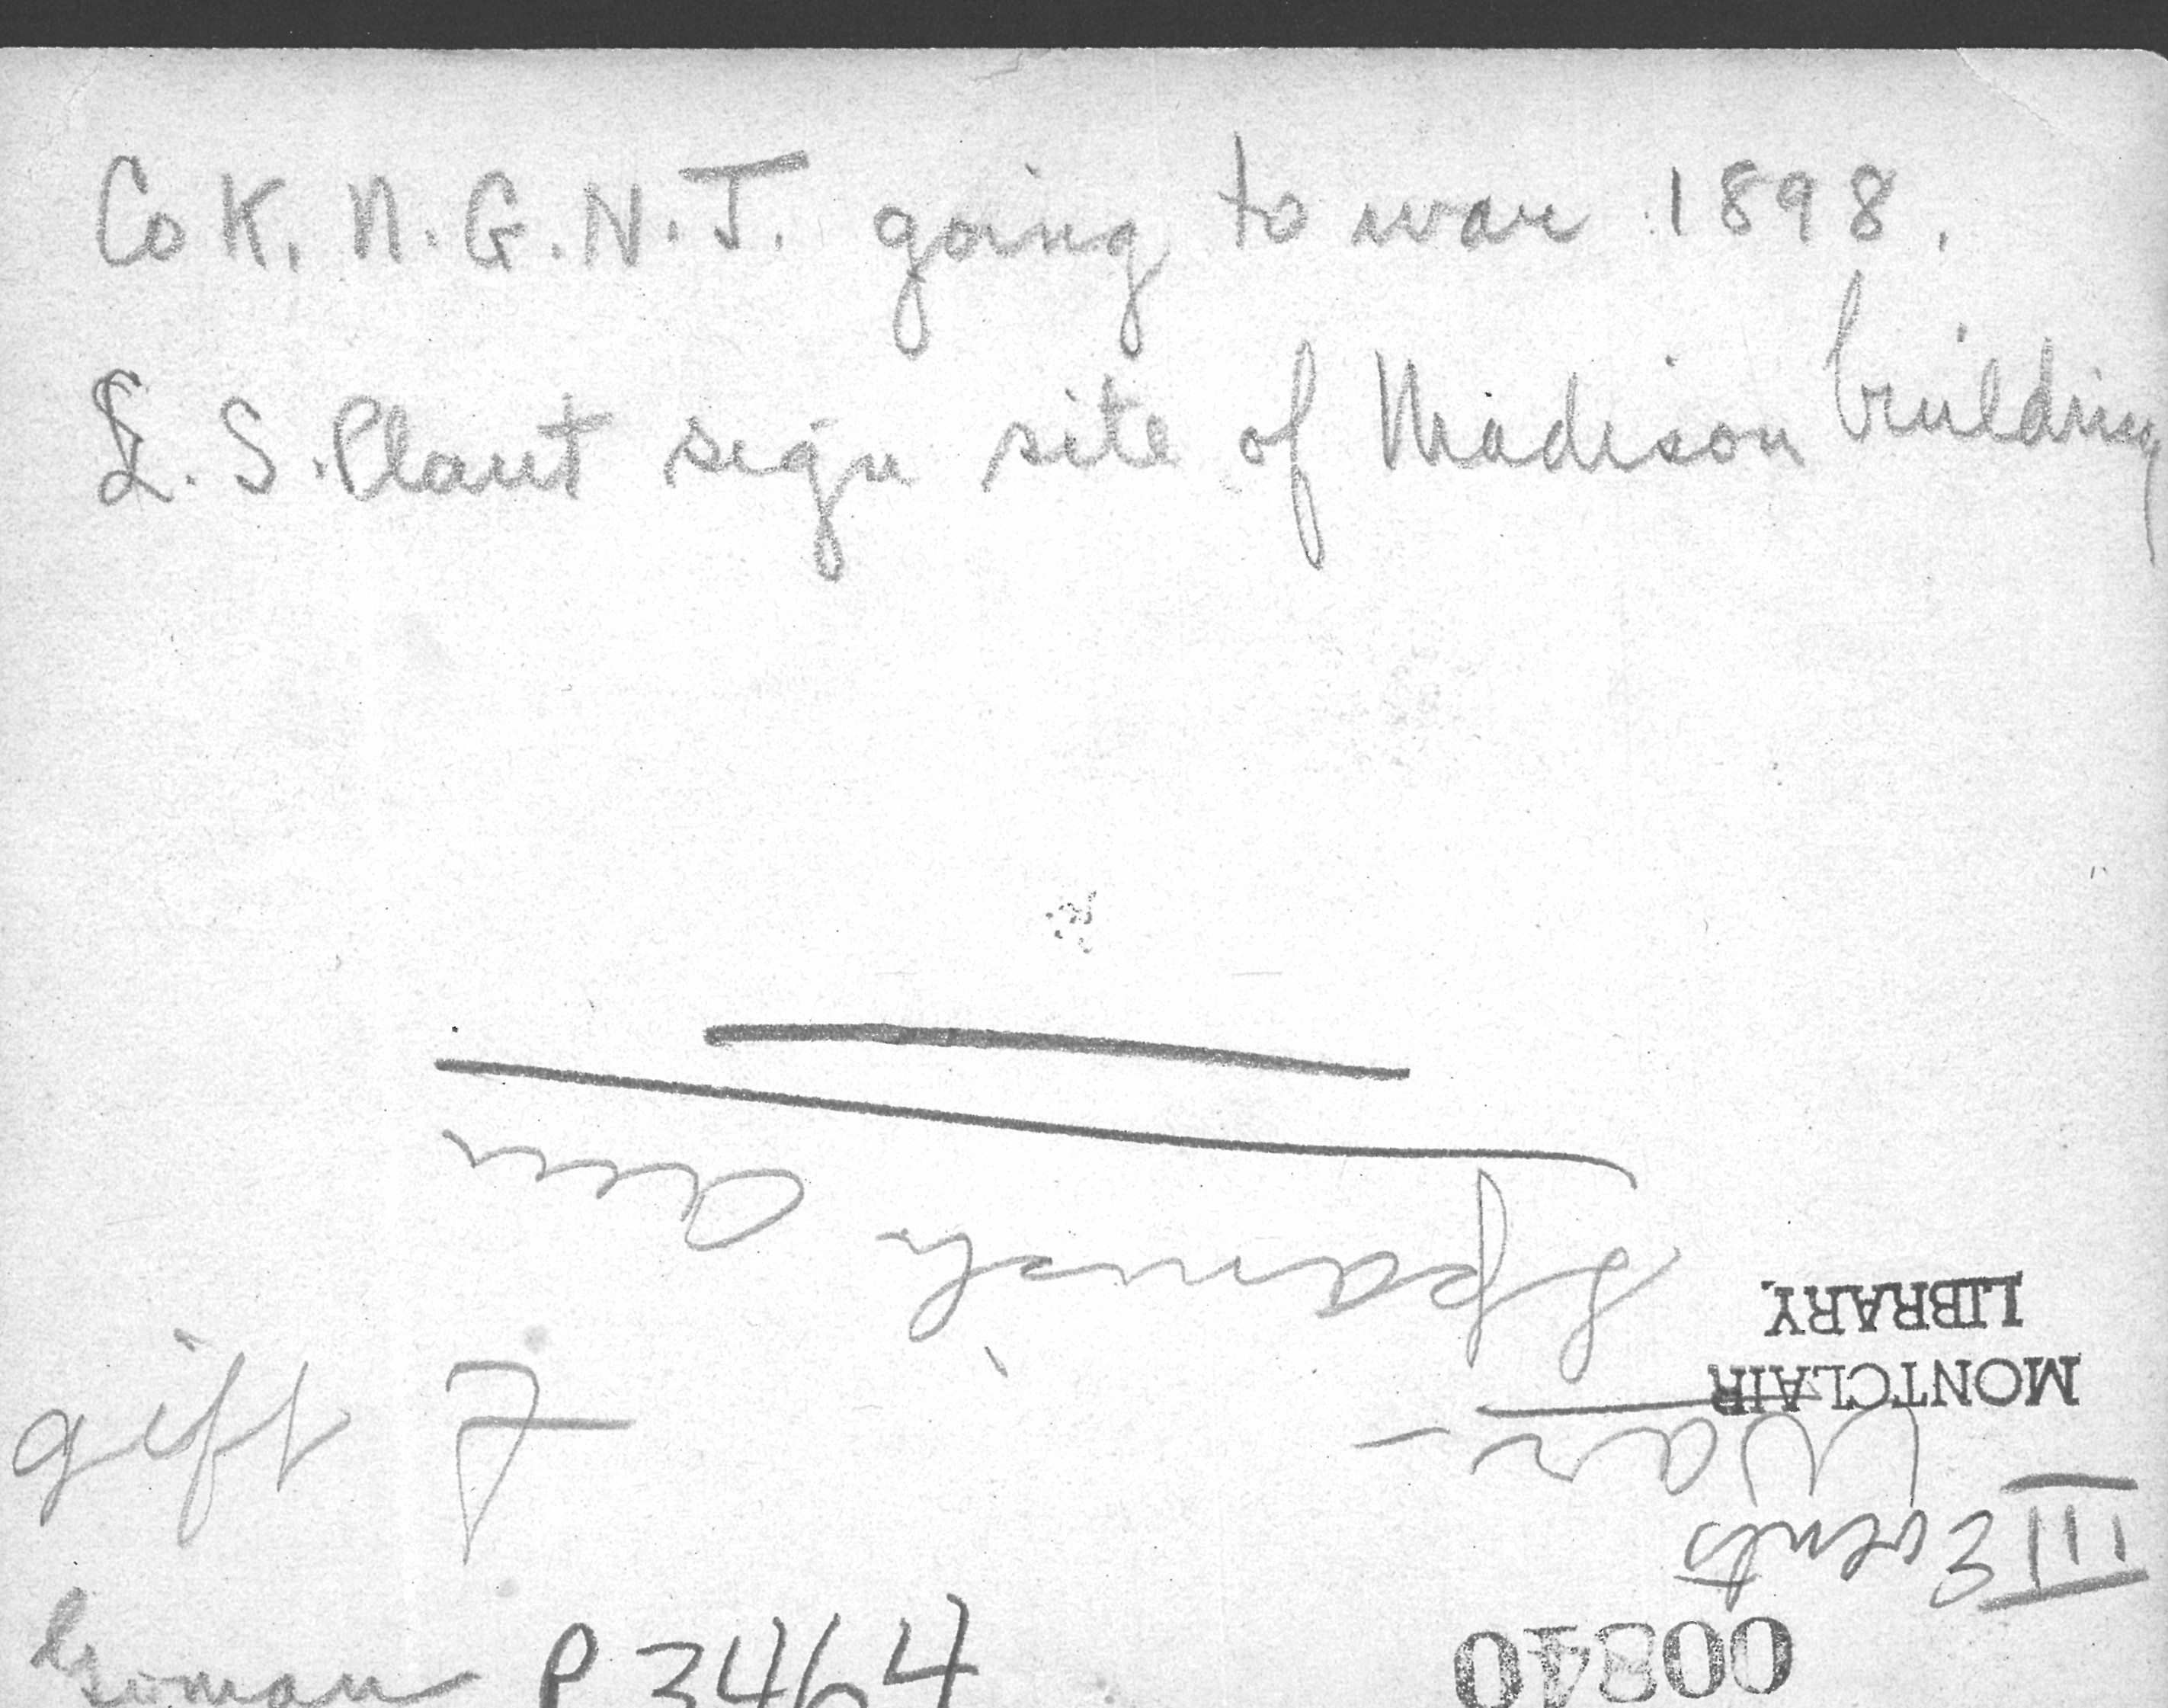 Co K. N.G.N.J. going to war 1898.
L. S. Plaut sign site of Madison building
00840
III Events
War -
MONTCLAIR
LIBRARY
Spanish Am
gift
P 3464